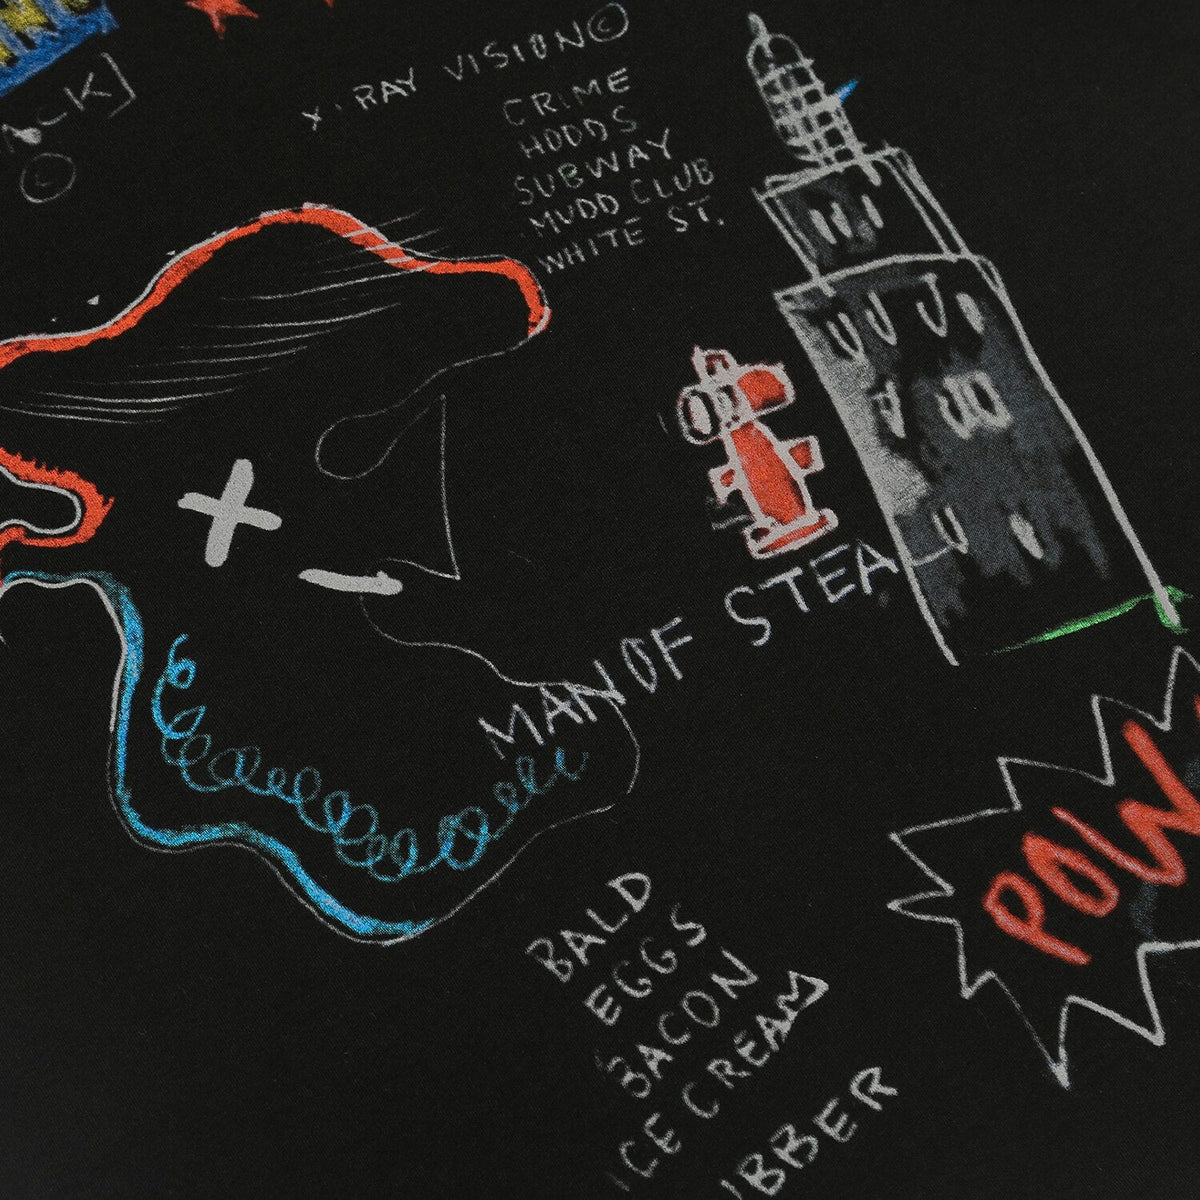 X-RAY VISION©
CRIME
HOODS
SUBWAY
MUDD CLUB
WHITE ST.
©
MAN OF STEA
POW
BALD
EGGS
BACON
ICE CREAM
UBBER